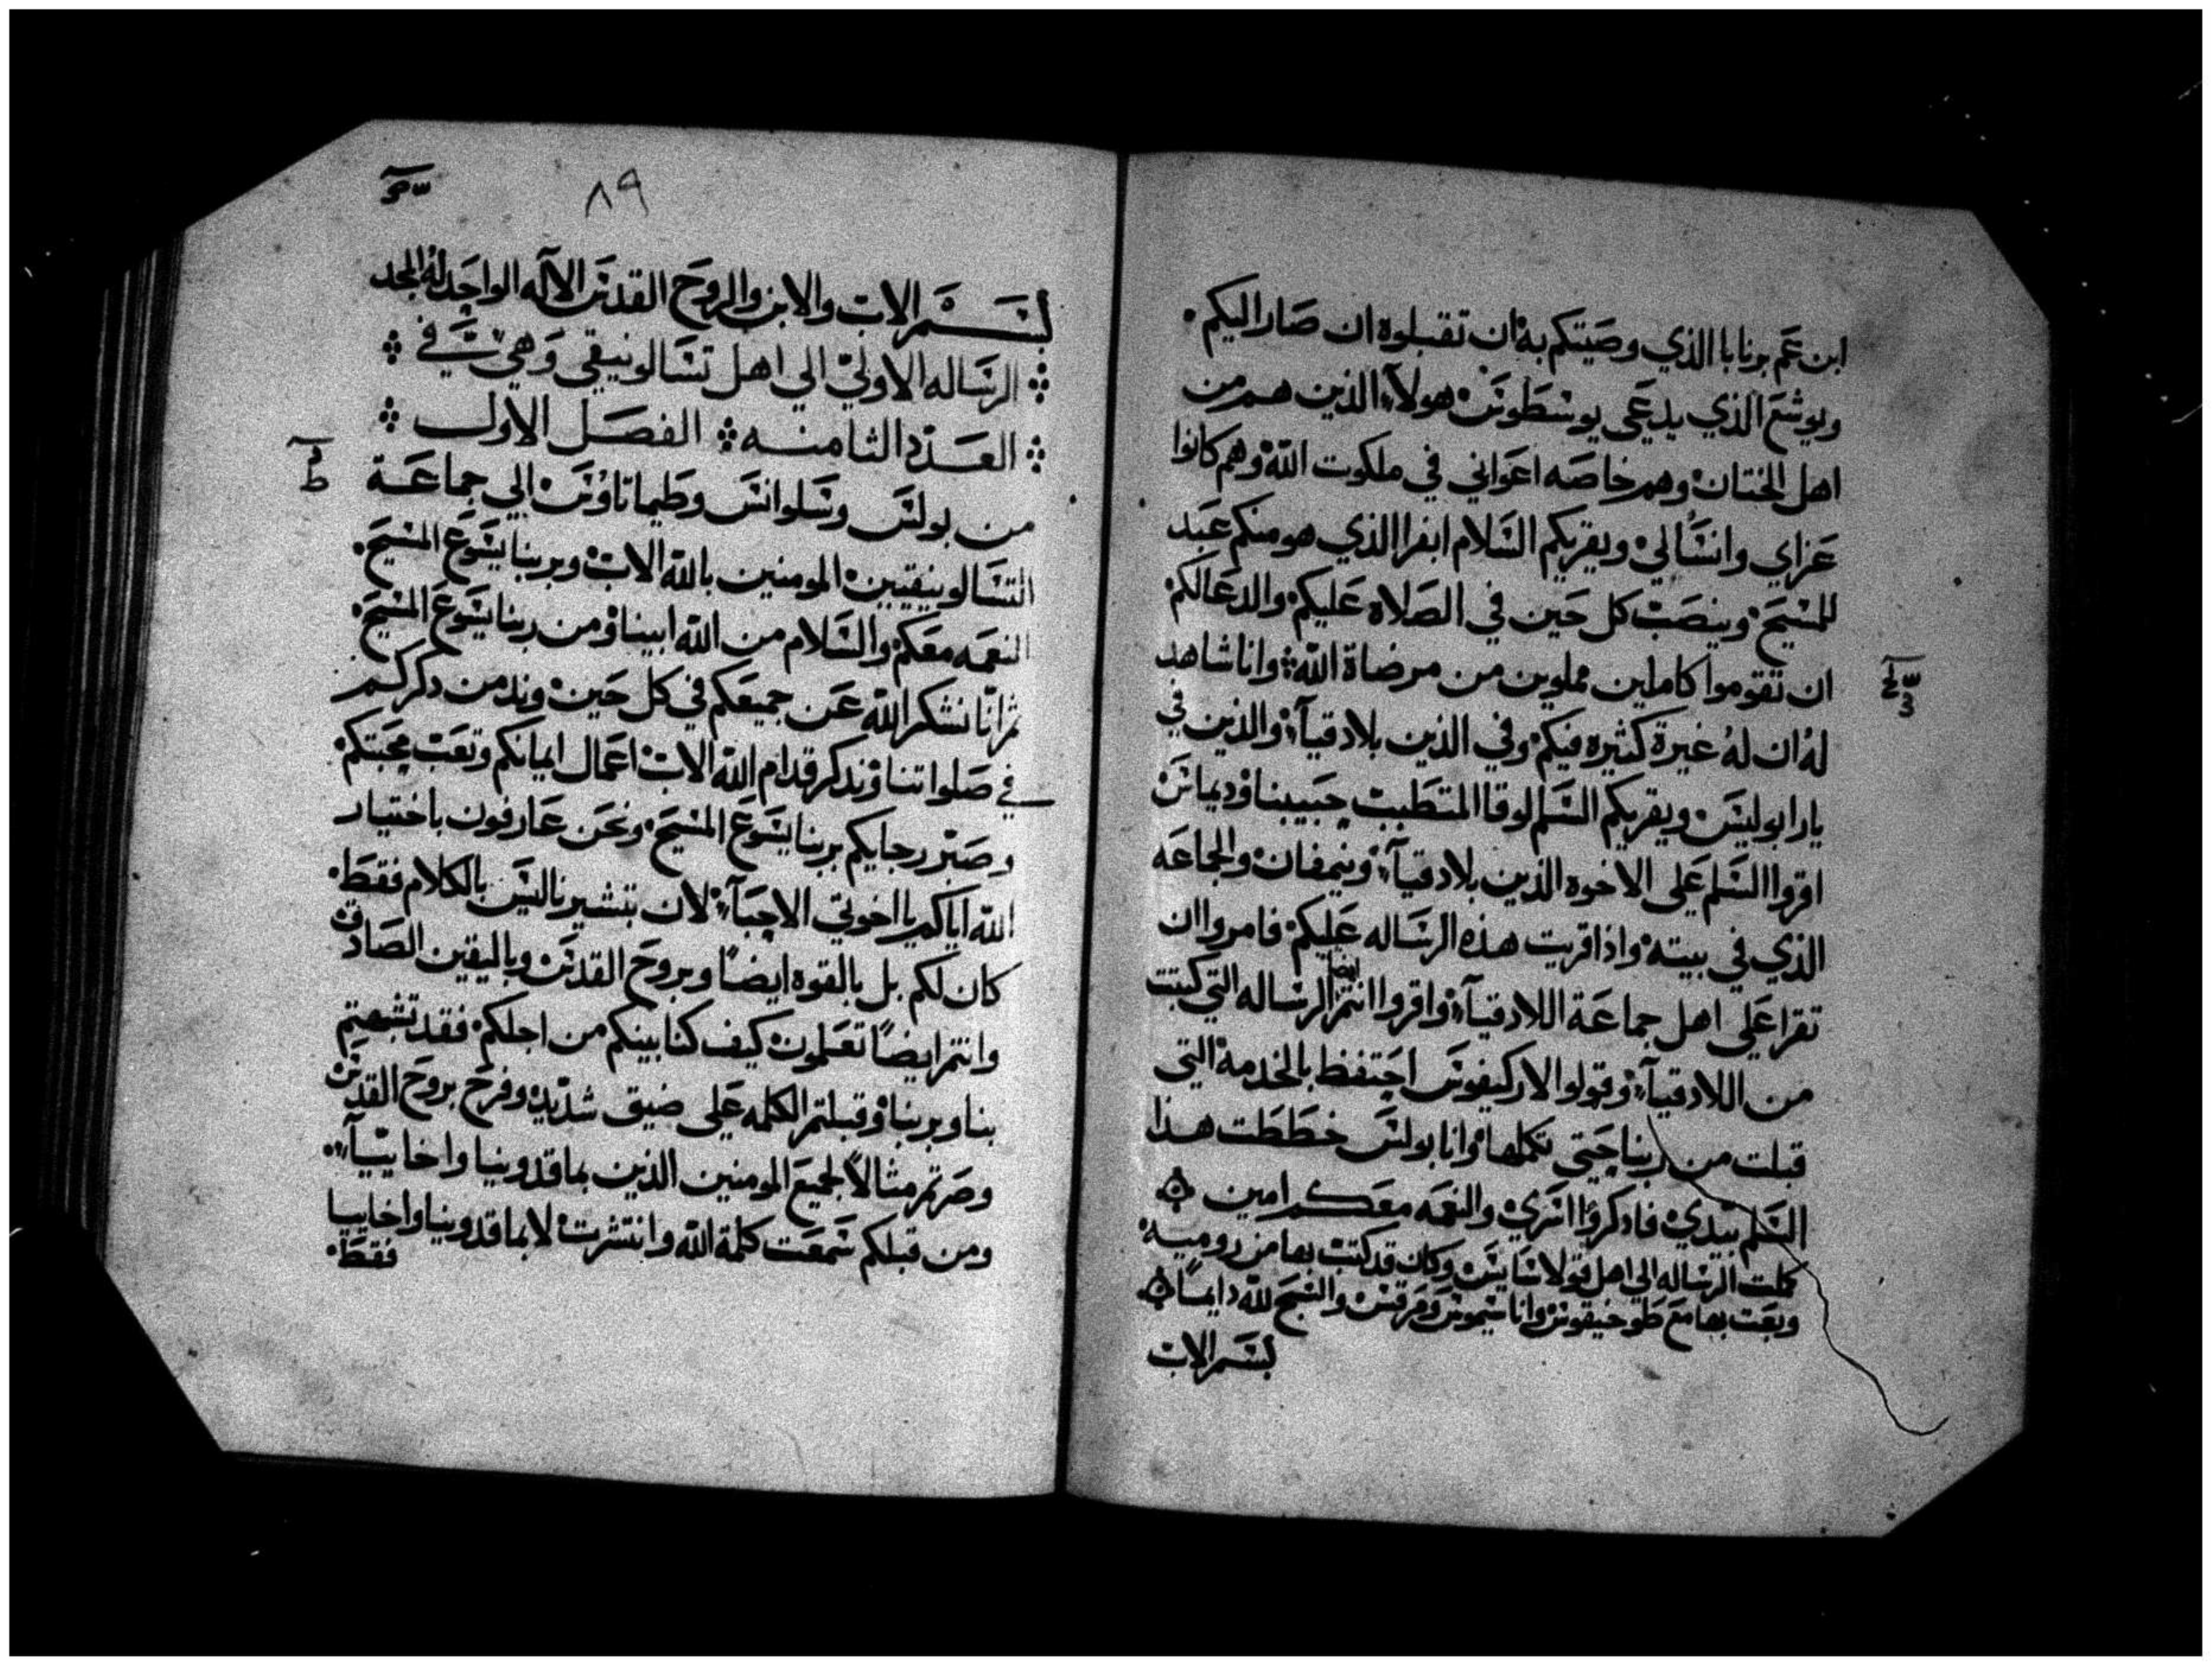 ابن عم برنابا الذي وصيتكم به ان تقبلوه ان صار اليكم.
ويوشع الذي يدعى يوسطوس هولآء الذين هم من
اهل الختان وهم خاصه اعواني في ملكوت الله وهم كانوا
عزاي وانسًا لي ويقريكم السلام ابفرا الذي هو منكم عبد
للمسيح وينصب كل حين في الصلاه عليكم والدعا لكم
ان تقوموا كاملين مملوين من مرضاة الله وانا شاهد
له ان له غيرة كثيره فيكم وفي الذين بلادقيآء والذين في
يارابوليس ويقريكم السلم لوقا المتطبب حبيبنا وديماس
اقروا السلم على الاخوه الذين بلادقيآء ونيمفان والجماعه
الذي في بيته واذا قريت هذه الرساله عليكم فامروا ان
تقرا علي اهل جماعة اللادقيآء واقروا انتم ايضا الرساله التي كتبت
من اللادقيآء وقولوا لاركيفوس احتفظ بالخدمة التي
قبلت من ربنا حتي تكملها وانا بولس خططت هذا
السلم بيدي فاذكروا اسري والنعمه معكم امين
كملت الرساله الي اهل قولاسايس وكان قد كتب بها من روميه
وبعت بها مع طوخيقوس واناسيموس ومرقس والسبح لله دايمًا
بسم الاب
٨٩
بسم الاب والابن والروح القدس الآله الواحد له المجد
الرساله الاولي الي اهل تسالونيقي وهي في
العدد الثامنه الفصل الاول
من بولس وسلوانس وطيماتاوس الي جماعة
التسالونيقيين المومنين بالله الاب وبربنا يسوع المسيح.
النعمه معكم والسلام من الله ابينا ومن ربنا يسوع المسيح
ثم انا نشكر الله عن جميعكم في كل حين وندمن ذكركم
في صلواتنا ونذكر قدام الله الاب اعمال ايمانكم وتعب محبتكم
وصبر رجايكم بربنا يسوع المسيح ونحن عارفون باختيار
الله اياكم يااخوتي الاحبآء لان بتشيرنا ليس بالكلام فقط.
كان لكم بل بالقوه ايضًا وبروح القدس وباليقين الصادق
وانتم ايضًا تعلمون كيف كنا بينكم من اجلكم فقد تشبهتم
بنا وبربنا وقبلتم الكلمه علي ضيق شديد وفرح بروح القدس
وصرتم مثالاً لجميع المومنين الذين بماقدونيا واخاييآء
ومن قبلكم سمعت كلمة الله وانتشرت لا بماقدونيا واخاييا
فقط